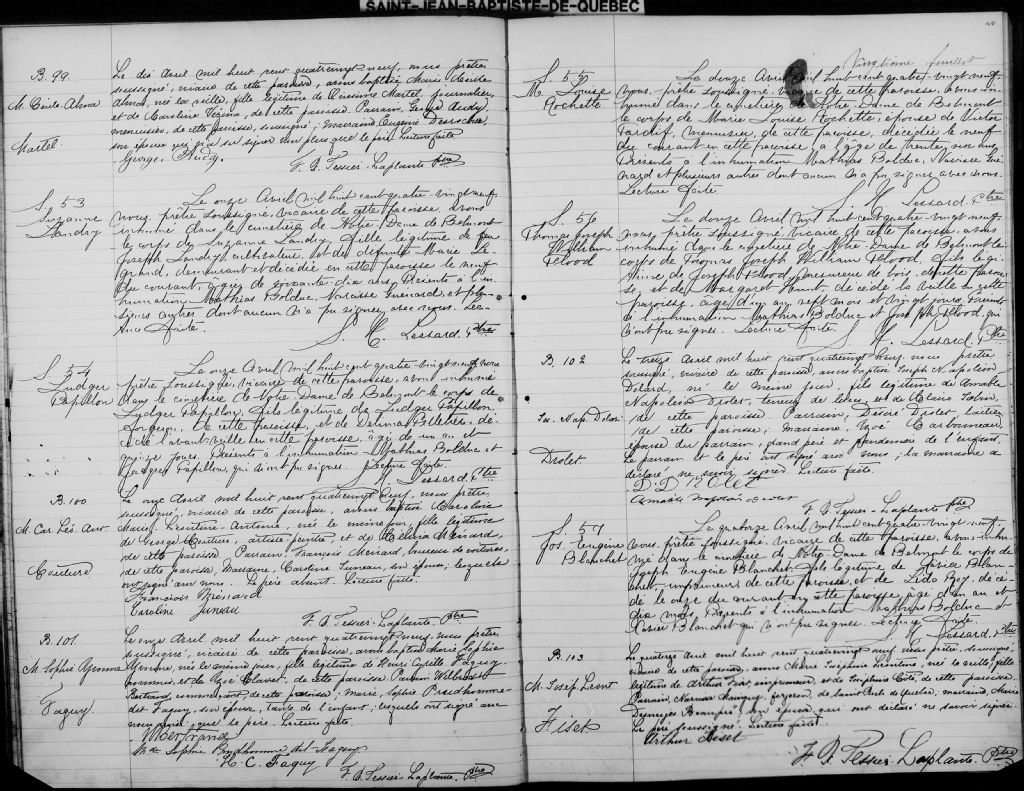 SAINT-JEAN-BAPTISTE-DE-QUÉBEC
B. 99.
M. Cécile Alma
Martel.
Le dix Avril mil huit cent quatrevingt neuf, nous prêtre
soussigné, vicaire de cette paroisse, avons baptisé Marie Cécile
Alma, née la veille, fille légitime de Onésime Martel, journalier,
et de Caroline Vézina, de cette paroisse. Parrain, George Audy,
menuisier, de cette paroisse, soussigné; marraine Eugénie Desroches,
son épouse qui n'a su signer non plus que le père. Lecture faite
George Audy.
F. X. Tessier-Laplante Ptre
S. 53
Suzanne
Landry
Le onze Avril mil huit cent quatre-vingt neuf
nous, prêtre soussigné, vicaire de cette paroisse, avons
inhumé dans le cimetière de Notre-Dame de Belmont
le corps de Suzanne Landry, fille légitime de feu
Joseph Landry, cultivateur, et de défunte Marie Le-
grand, demeurant et décédée en cette paroisse le neuf
du courant, âgée de soixante-dix ans. Présents à l'in-
humation Mathias Bolduc, Narcisse Guénard, et plu-
sieurs autres dont aucun n'a pu signer avec nous. Lec-
ture faite.
S. H. Lessard, Ptre
S. 54
Ludger
Papillon
Le onze Avril mil huit cent quatre-vingt neuf nous
prêtre soussigné, vicaire de cette paroisse, avons inhumé
dans le cimetière de Notre-Dame de Belmont le corps de
Ludger Papillon, fils légitime de Ludger Papillon,
forgeron, de cette paroisse, et de Delima Pllletier, dé-
cédé l'avant-veille en cette paroisse, âgé de un an et
quinze jours. Présents à l'inhumation Mathias Bolduc et
Ludger Papillon, qui n'ont pu signer. Lecture faite.
S. H. Lessard, Ptre
B. 100
M. Car. Léo. Ant.
Couture
Le onze Avril mil huit cent quatrevingt neuf, nous prêtre
soussigné, vicaire de cette paroisse, avons baptisé Caroline
Marie Antonia, née le même jour, fille légitime
de George Couture, artiste-peintre, et de Célina Ménard,
de cette paroisse. Parrain, François Ménard, de voitures,
de cette paroisse; marraine, Caroline Juneau, son épouse, lesquels
ont signé avec nous. Le père absent. Lecture faite.
François Ménard
Caroline Juneau
F. X. Tessier-Laplante. Ptre
B. 101.
M. Sophie Yvonne
Faguy.
Le onze Avril mil huit cent quatrevingt neuf, nous prêtre
soussigné, vicaire de cette paroisse, avons baptisé Marie Sophie
Yvonne, née le même jour, fille légitime de Henri Cyrille Faguy
et de Zoé Clavet, de cette paroisse. Parrain
Bertrand, commerçant, de cette paroisse; marraine, Marie Sophie Prudhomme
dit Faguy, son épouse, tante de l'enfant; lesquels ont signé avec
nous ainsi que le père. Lecture faite.
W Bertrand
Mme Sophie Prudhomme dit Faguy
H. C. Faguy
F. X. Tessier-Laplante. Ptre
Vingtième feuillet
S. 55
M. Louise
Rochette
Le douze Avril mil huit cent quatre-vingt neuf
nous, prêtre soussigné, vicaire de cette paroisse, avons in-
humé dans le cimetière de Notre-Dame de Belmont
le corps de Marie Louise Rochette, épouse de Victor
Tardif, menuisier, de cette paroisse, décédée le neuf
du courant en cette paroisse, à l'âge de trente six ans
Présents à l'inhumation Mathias Bolduc, Narcisse Gué-
nard et plusieurs autres dont aucun n'a pu signer avec nous.
Lecture faite.
S. H. Lessard, Ptre
S. 56
Thomas Joseph
William
Flood
Le douze Avril mil huit cent quatre-vingt neuf
nous, prêtre soussigné, vicaire de cette paroisse, avons
inhumé dans le cimetière de Notre-Dame de Belmont le
corps de Thomas Joseph William Flood, fils légi-
time de Joseph Flood, mesureur de bois, de cette parois-
se, et de Margaret Hunt, décédé la veille en cette
paroisse, âgé d'un an sept mois et vingt jours. Présents
à l'inhumation Mathias Bolduc et Joseph Flood, qui
n'ont pu signer. Lecture faite.
S. H. Lessard, Ptre
B. 102
Jos. Nap.
Drolet.
Le treize Avril mil huit cent quatrevingt neuf, nous prêtre
soussigné, vicaire de cette paroisse, avons baptisé Joseph Napoléon
né le même jour, fils légitime de Amable
Napoléon Drolet, teneur de livres, et de Marie Tobin,
de cette paroisse. Parrain, Désiré Drolet, laitier,
de cette paroisse; marraine, Zoé Carbonneau,
épouse du parrain, grand père et grandmère de l'enfant.
Le parrain et le père ont signé avec nous; la marraine a
déclaré ne savoir signer. Lecture faite.
D. Drolet
Amable Napoléon Drolet
F. X. Tessier-Laplante Ptre
S. 57
Jos. Eugène
Blanchet
Le quatorze Avril mil huit cent quatre-vingt neuf,
nous, prêtre soussigné, vicaire de cette paroisse, avons inhu-
mé dans le cimetière de Notre-Dame de Belmont le corps de
Joseph Eugène Blanchet, fils légitime de Blan-
chet, imprimeur, de cette paroisse, et de Lida Roy, décé-
dé le onze du courant en cette paroisse, âgé d'un an et
dix mois. Présents à l'inhumation Mathias Bolduc et
Blanchet qui n'ont pu signer. Lecture faite.
S. H. Lessard, Ptre
B. 103.
M. Joseph Léont.
Fiset
Le quatorze Avril mil huit cent quatrevingt neuf nous prêtre, soussigné,
vicaire de cette paroisse, avons Marie Joséphine Léontine, née la veille, fille
légitime de Arthur Fiset, imprimeur, et de Joséphine Côté, de cette paroisse.
Parrain, forgeron, de Saint Roch de Québec; marraine, Marie
son épouse qui ont déclaré ne savoir signer.
Le père soussigné. Lecture faite.
Arthur Fiset
F. X. Tessier-Laplante. Ptre